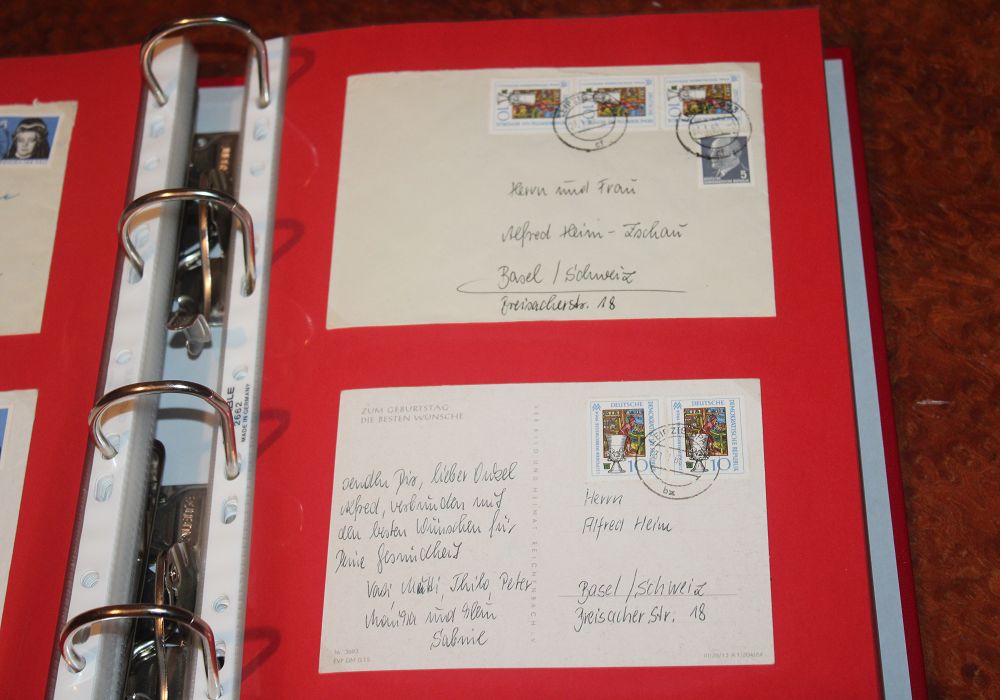 10
10
10
5
Herrn und Frau
Alfred Heim-Zschau
Basel/Schweiz
Breisacherstr. 18
2662
MADE IN GERMANY
ZUM GEBURTSTAG
DIE BESTEN WÜNSCHE
senden Dir, lieber Onkel
Alfred, verbunden mit
den besten Wünschen für
Deine Gesundheit
Vati Mutti, Thilo, Peter
und
Sabine
VERBILD UND HEIMAT REICHENBACH I. V.
DEUTSCHE
DEMOKRATISCHE REPUBLIK
10
DEUTSCHE
DEMOKRATISCHE REPUBLIK
10
LEIPZIG
bx
Herrn
Alfred Heim
Basel/Schweiz
Breisacher Str. 18
Nr. 3693
EVP DM 0,15